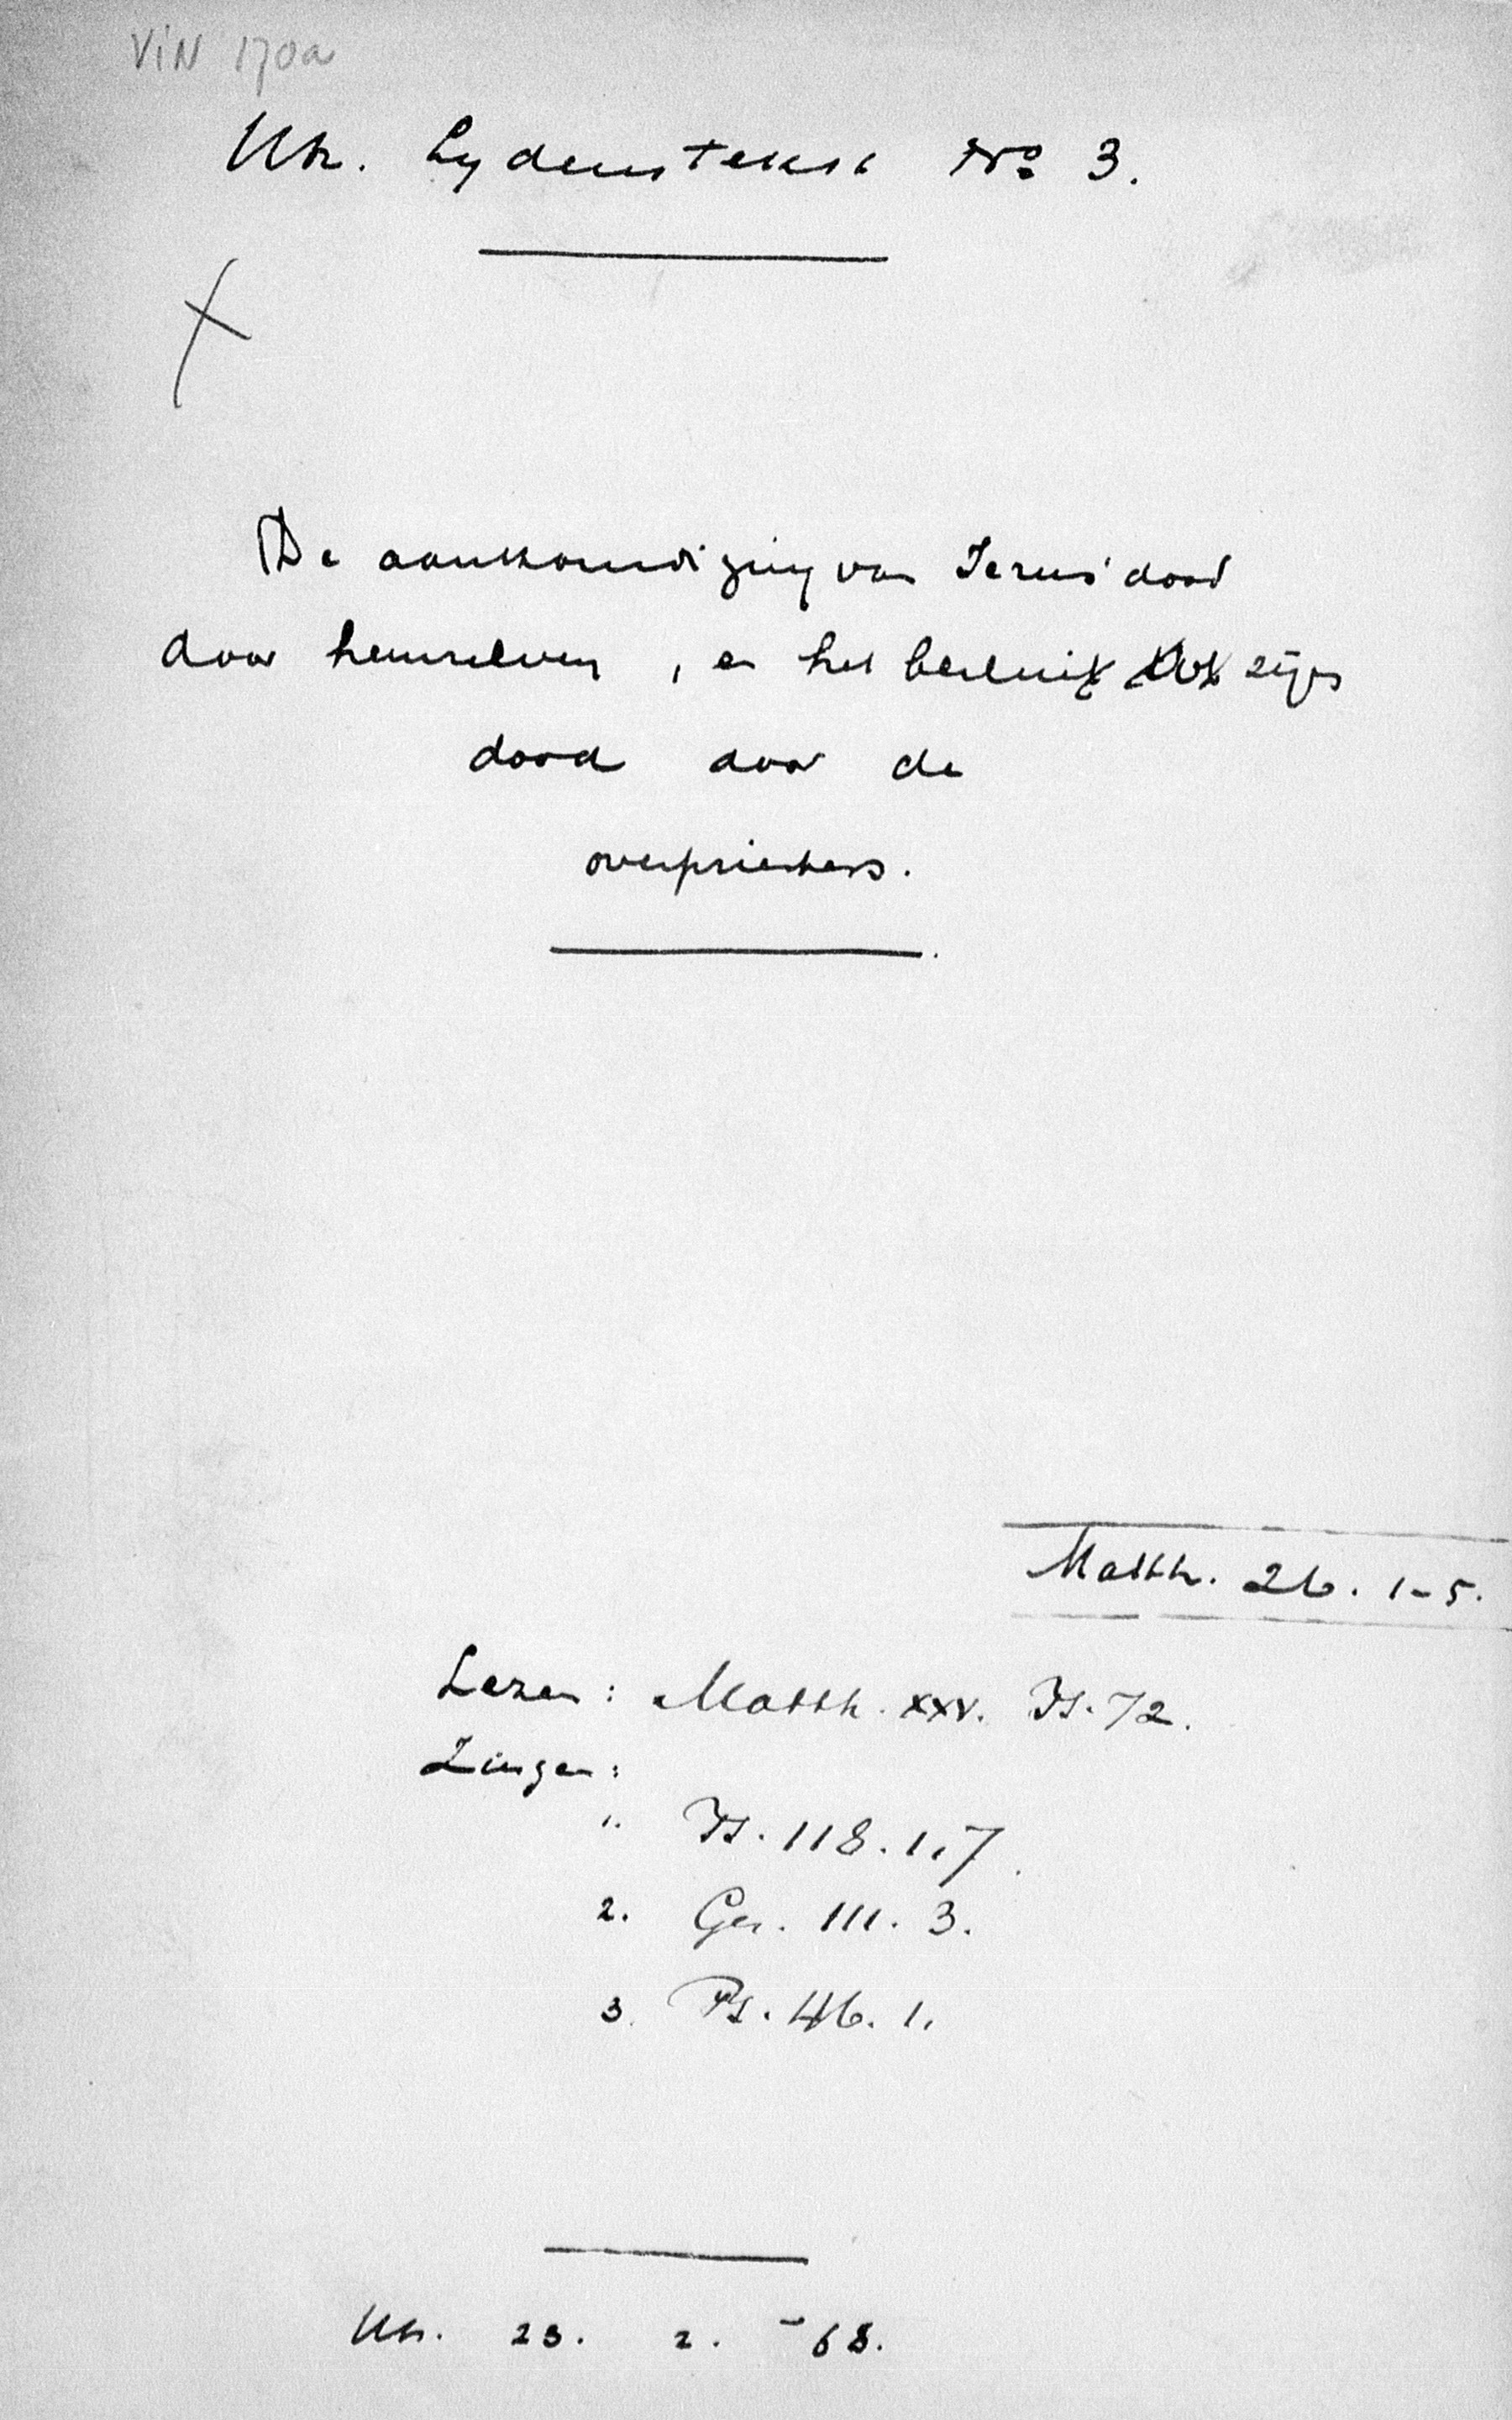 VIN 170a
Utr. Lydenstekst No 3.
De aankondiging van Jezus' dood
door hemzelven, en het besluit tot zijn
dood door de
overpriesters.
Matth. 26. 1-5.
Lezen: Matth. XXV. Ps. 72.
Zingen:
1. Ps. 118. 1,7.
2. Gez. 111. 3.
3. Ps. 46. 1.
Utr. 23. 2. -68.